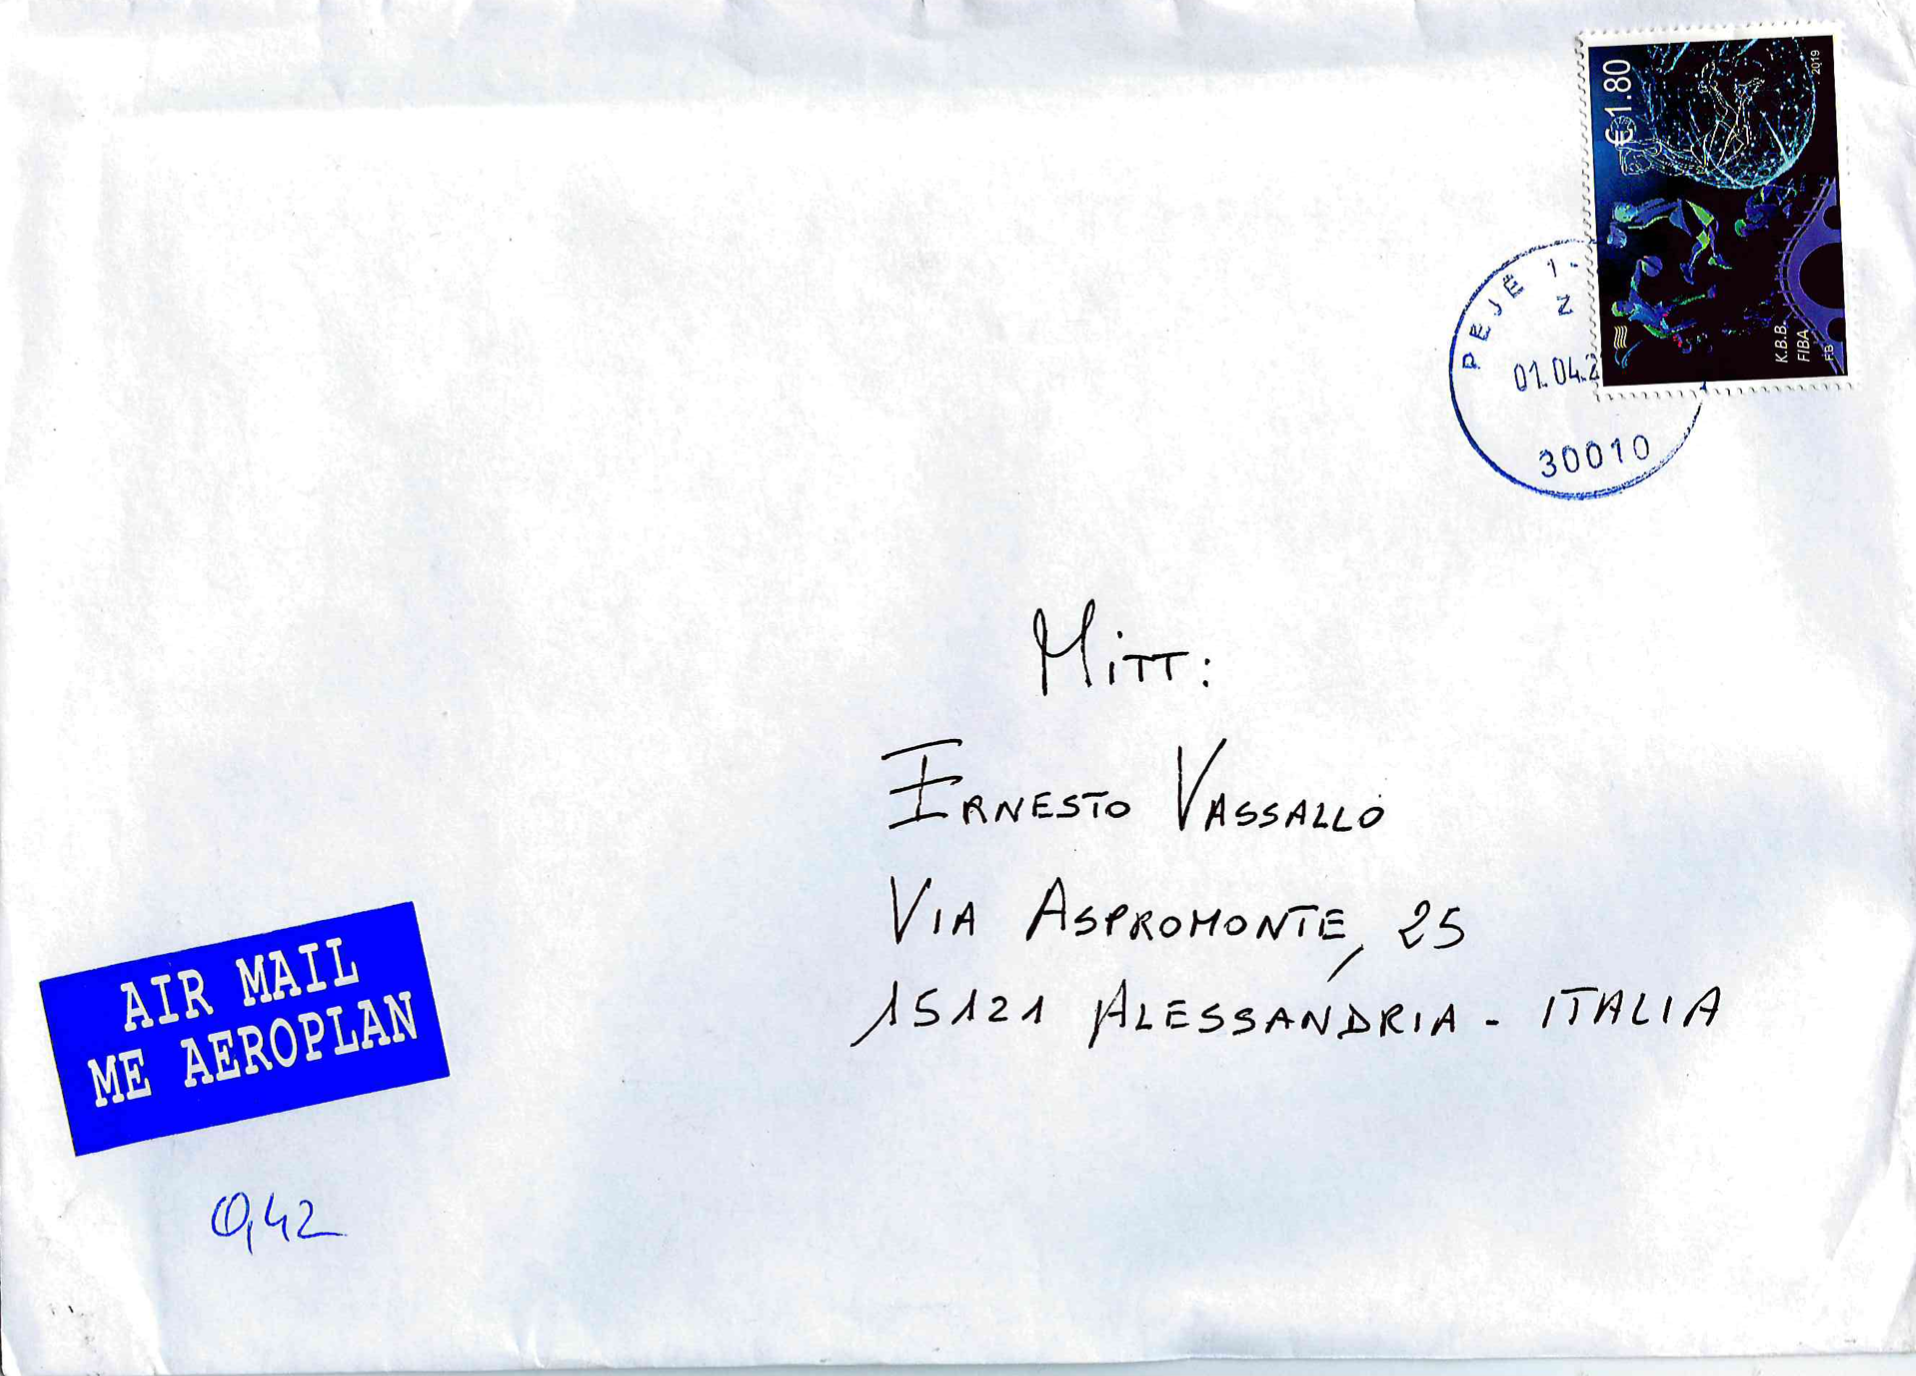 €1.80
2019
K.B.B.
FIBA
FB
PEJË 1-
Z
01.04.2
30010
Mitt:
Ernesto Vassallo
Via Aspromonte, 25
15121 Alessandria - ITALIA
AIR MAIL
ME AEROPLAN
0,42